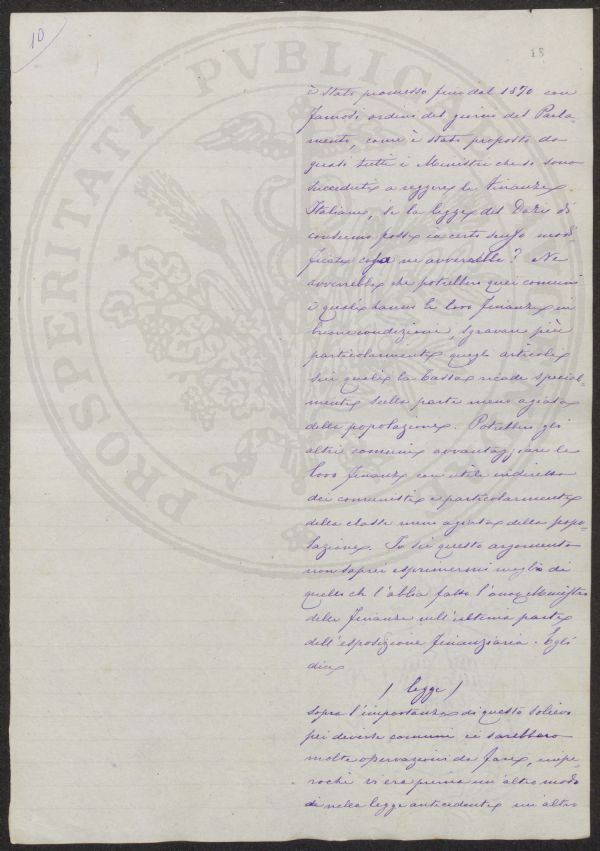 10
18
PROSPERITATI PVBLICAE
è stato promesso fino dal 1870 con
famosi ordini del giorno del Parla-
mento, come è stato proposto da
quasi tutti i Ministri che si sono
succeduti a reggere le Finanze
Italiane, se la legge del Dazio di
consumo fosse in certo senso modi-
ficata cosa ne avverrebbe? Ne
avverrebbe che potrebbero quei comuni
i quali hanno le loro finanze in
buone condizioni sgravare più
particolarmente quegli articoli
su quali la tassa ricade special-
mente sulla parte meno agiata
della popolazione. Potrebbero gli
altri comuni avvantaggiare le
loro finanze con utile indiretto
dei comunisti e particolarmente
della classe meno agiata della popo-
lazione. Io su questo argomento
non saprei esprimermi meglio di
quello che l'abbia fatto l'onor. Ministro
delle finanze nell'ultima parte
dell'esposizione finanziaria. Egli
dice
/ legge /
sopra l'importanza di questo sollievo
pei diversi comuni vi sarebbero
molte osservazioni da fare, impe-
rochè vi era prima un altro modo
di nella legge antecedente un altro